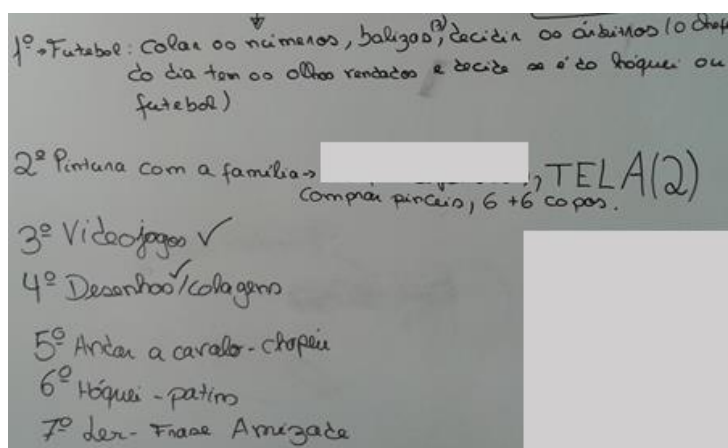 1º → Futebol: Colar os números, balizas (3), decidir os árbitros (o chefe
do dia tem os olhos vendados e decide se é do hóquei ou
futebol)
2º Pintura com a família → , TELA(2)
Comprar pinceis, 6 + 6 copos.
3º Videojogos ✓
4º Desenhos ✓/colagens
5º Andar a cavalo - chapéu
6º Hóquei - patins
7º Ler - Frase Amizade